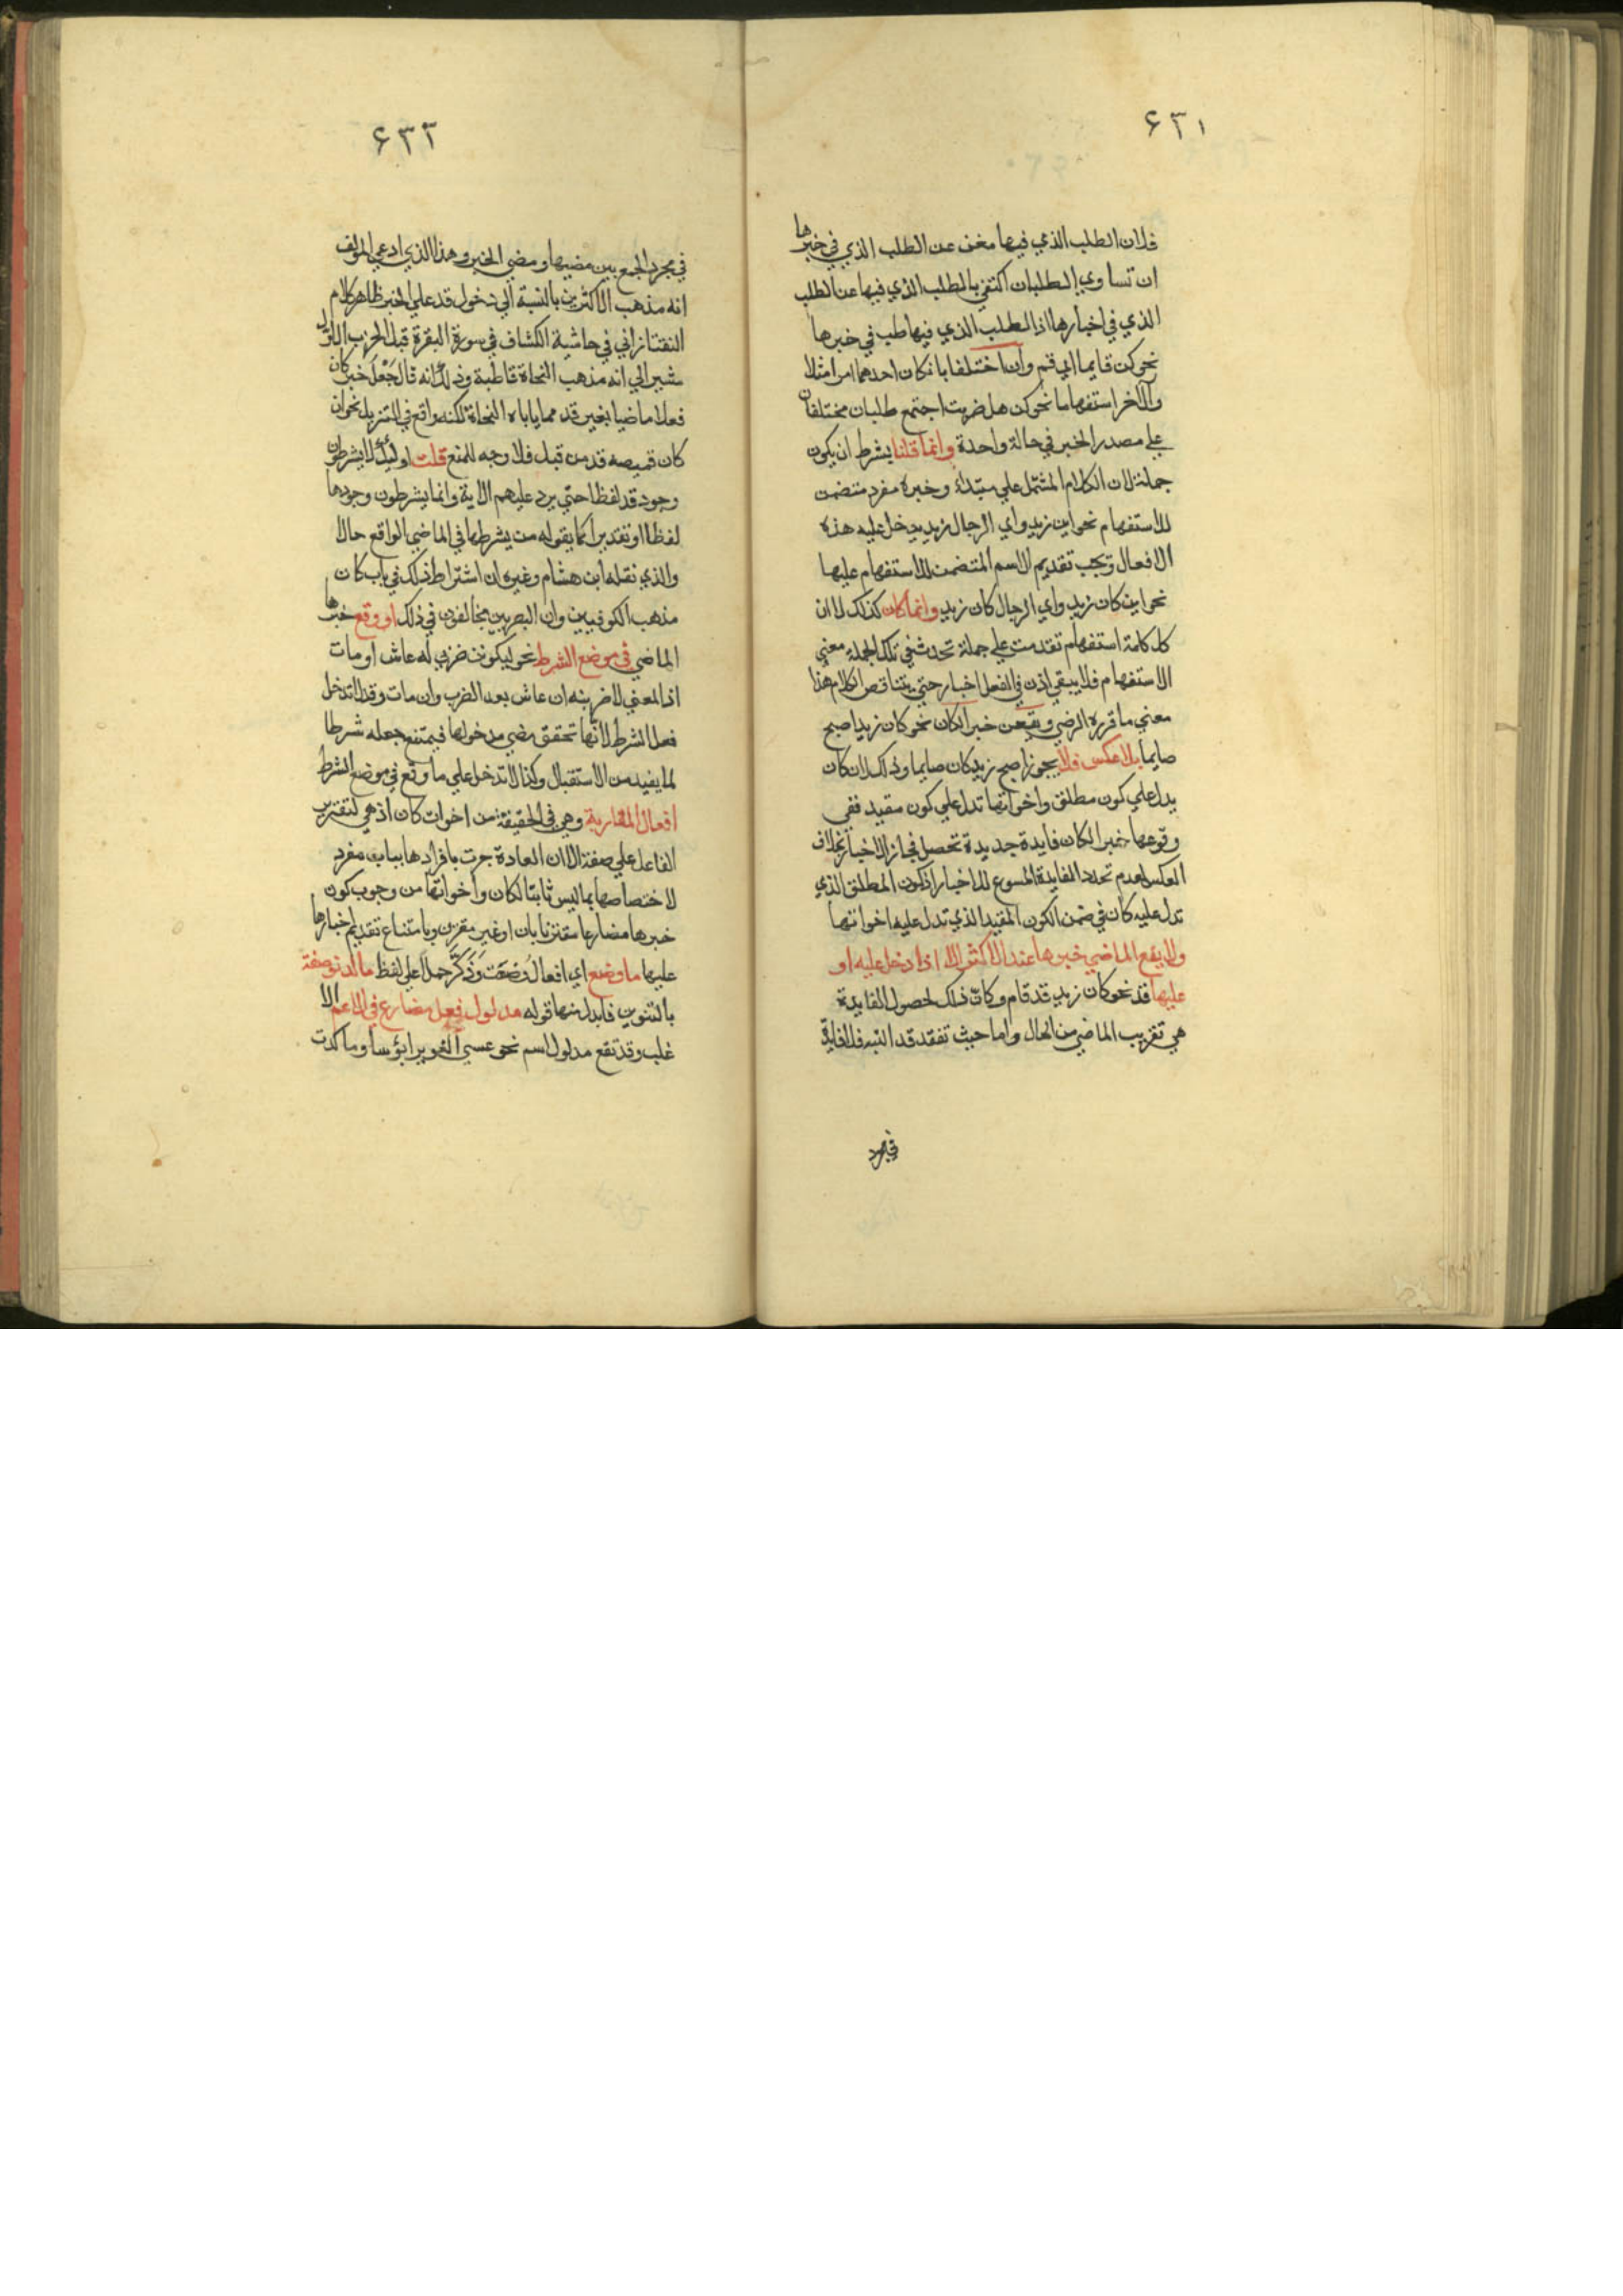 ۶۳۱
فلان الطلب الذي فيها مغن عن الطلب الذي في خبرها
ان تساوي الطلبان اكتفي بالطلب الذي فيها عن الطلب
الذي في اخبارها اذ الطلب الذي فيها طلب في خبرها
نحو كن قايما اي قم وان اختلفا بان كان احدهما امرا مثلا
والآخر استفهاما نحو كن هل ضربت اجتمع طلبان مختلفان
علي مصدر الخبر في حالة واحدة وانما قلنا يشرط ان يكون
جملة لان الكلام المشتمل علي مبتداء وخبره مفرد متضمن
للاستفهام نحو اين زيد واي الرجال زيد يدخل عليه هذه
الافعال ويجب تقديم الاسم المتضمن للاستفهام عليها
نحو اين كان زيد واي الرجال كان زيد وانما كان كذلك لان
كل كلمة استفهام تقدمت علي جملة تحدث في تلك الجملة معني
الاستفهام فلا يبقي اذن في الفعل اخبار حتي يتناقض الكلام هذا
معني ما قرره الرضي ويقعن خبرا لكان نحو كان زيد اصبح
صايما بلا عكس فلا يجوز اصبح زيد كان صايما وذلك لان كان
يدل علي كون مطلق واخواتها تدل علي كون مقيد ففي
وقوعها خبرا لكان فايدة جديدة تحصل فجاز الاخبار بخلاف
العكس لعدم تجدد الفايدة المسوغ للاخبار اذ كون المطلق الذي
تدل عليه كان في ضمن الكون المقيد الذي تدل عليه اخواتها
ولا يقع الماضي خبرها عند الاكثر الا اذا دخل عليه او
عليها قد نحو كان زيد قد قام وكان ذلك لحصول الفايدة
هي تقريب الماضي من الحال واما حيث تفقد قد البته فلا فايدة
في مجرد
۶۳۲
في مجرد الجمع بين مضيها ومضي الخبر وهذا الذي ادعي المؤلف
انه مذهب الاكثرين بالنسبة الي دخول قد علي الخبر ظاهر كلام
التفتازاني في حاشية الكشاف في سورة البقرة قبل الحزب الاول
مشير الي انه مذهب النحاة قاطبة وذلك انه قال جعل خبر كان
فعلا ماضيا بغير قد مما ياباه النحاة لكنه واقع في التنزيل نحو ان
كان قميصه قد من قبل فلا وجه للمنع قلت اوليك لا يشرطون
وجود قد لفظا حتي يرد عليهم الاية وانما يشرطون وجودها
لفظا او تقديرا كما يقوله من يشرطها في الماضي الواقع حالا
والذي نقله ابن هشام وغيره ان اشتراط ذلك في باب كان
مذهب الكوفيين وان البصريين مخالفون في ذلك او وقع خبرها
الماضي في موضع الشرط نحو ليكونن ضربي له عاش او مات
اذ المعني لاضربنه ان عاش بعد الضرب وان مات وقد لا تدخل
فعل الشرط لانها تحقق مضي مدخولها فيمتنع جعله شرطا
لما يفيد من الاستقبال وكذا لا تدخل علي ما وقع في موضع الشرط
افعال المقاربة وهي في الحقيقة من اخوات كان اذ هي لتقرير
الفاعل علي صفة الا ان العادة جرت بافرادها بباب مفرد
لاختصاصها بما ليس ثابتا لكان واخواتها من وجوب كون
خبرها مضارعا مقترنا بان او غير مقترن وبامتناع تقديم اخبارها
عليها ما وضع اي افعال وضعت وذكر حملا علي لفظ ما لدنو صفة
بالتنوين فابدل منها قوله مدلول فعل مضارع في الاعم الا
غلب وقد تقع مدلول اسم نحو عسي الغوير ابؤسا وما كدت